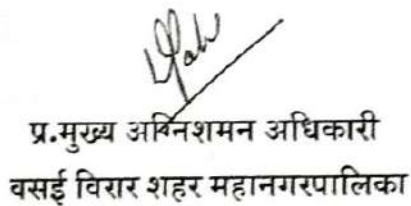 प्र.मुख्य अग्निशमन अधिकारी
वसई विरार शहर महानगरपालिका